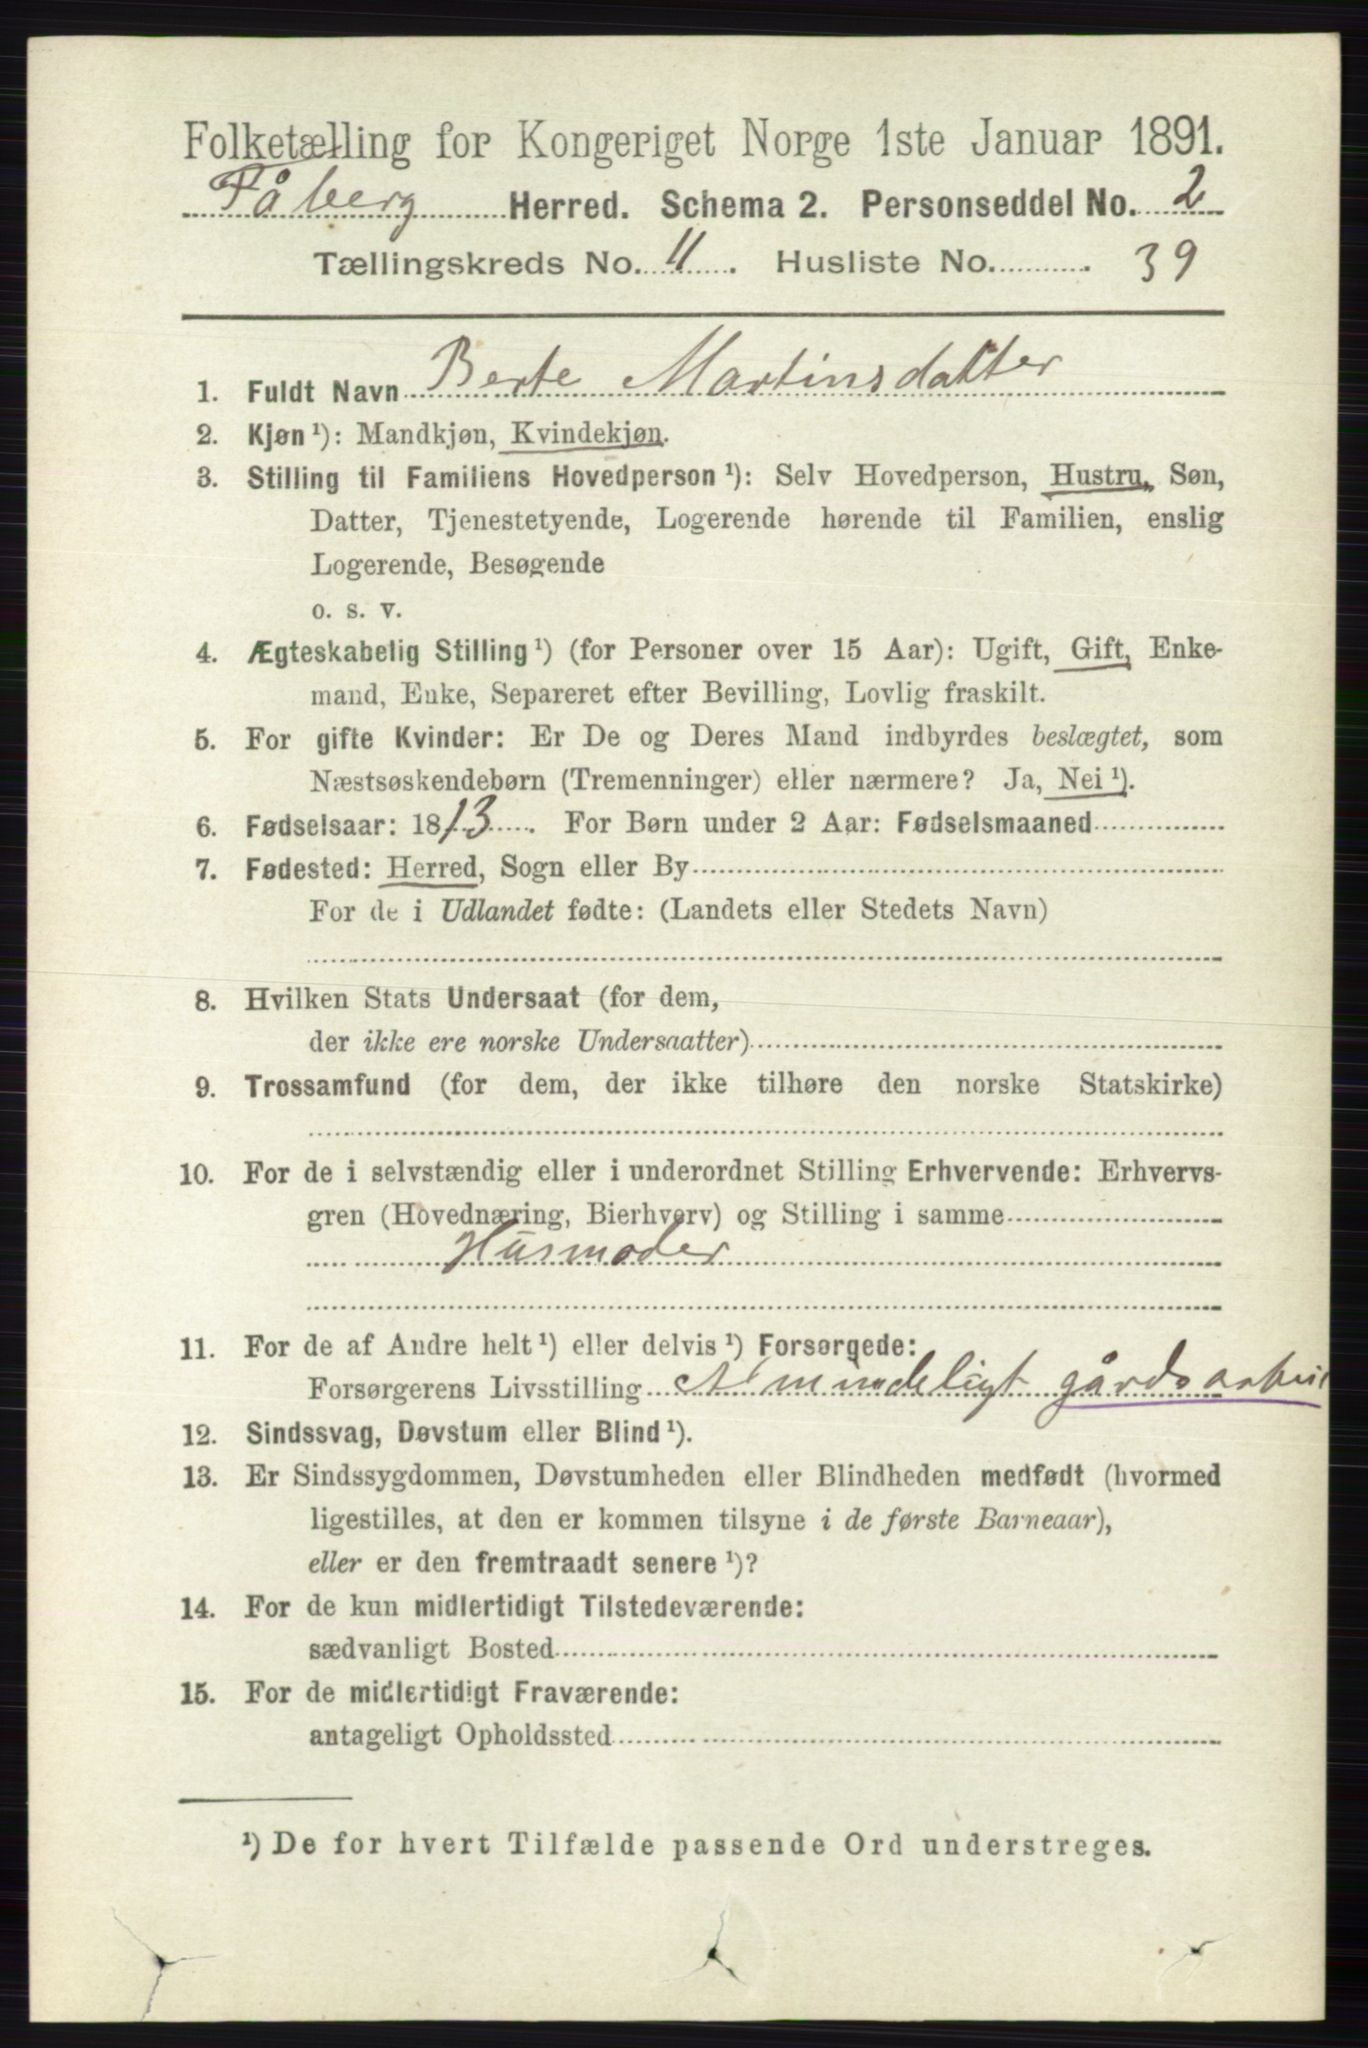 Folketælling for Kongeriget Norge 1ste Januar 1891.
Fåberg Herred. Schema 2. Personseddel No. 2
Tællingskreds No. 11. Husliste No. 39
1. Fuldt Navn Berte Martinsdatter
2. Kjøn ¹): Mandkjøn, Kvindekjøn.
3. Stilling til Familiens Hovedperson ¹): Selv Hovedperson, Hustru, Søn,
Datter, Tjenestetyende, Logerende hørende til Familien, enslig
Logerende, Besøgende
o. s. v.
4. Ægteskabelig Stilling ¹) (for Personer over 15 Aar): Ugift, Gift, Enke-
mand, Enke, Separeret efter Bevilling, Lovlig fraskilt.
5. For gifte Kvinder: Er De og Deres Mand indbyrdes beslægtet, som
Næstsøskendebørn (Tremenninger) eller nærmere? Ja, Nei ¹).
6. Fødselsaar: 1813. For Børn under 2 Aar: Fødselsmaaned
7. Fødested: Herred, Sogn eller By
For de i Udlandet fødte: (Landets eller Stedets Navn)
8. Hvilken Stats Undersaat (for dem,
der ikke ere norske Undersaatter)
9. Trossamfund (for dem, der ikke tilhøre den norske Statskirke)
10. For de i selvstændig eller i underordnet Stilling Erhvervende: Erhvervs-
gren (Hovednæring, Bierhverv) og Stilling i samme
Husmoder
11. For de af Andre helt ¹) eller delvis ¹) Forsørgede:
Forsørgerens Livsstilling Almindeligt gårdsarbei
12. Sindssvag, Døvstum eller Blind ¹).
13. Er Sindssygdommen, Døvstumheden eller Blindheden medfødt (hvormed
ligestilles, at den er kommen tilsyne i de første Barneaar),
eller er den fremtraadt senere ¹)?
14. For de kun midlertidigt Tilstedeværende:
sædvanligt Bosted
15. For de midlertidigt Fraværende:
antageligt Opholdssted
¹) De for hvert Tilfælde passende Ord understreges.